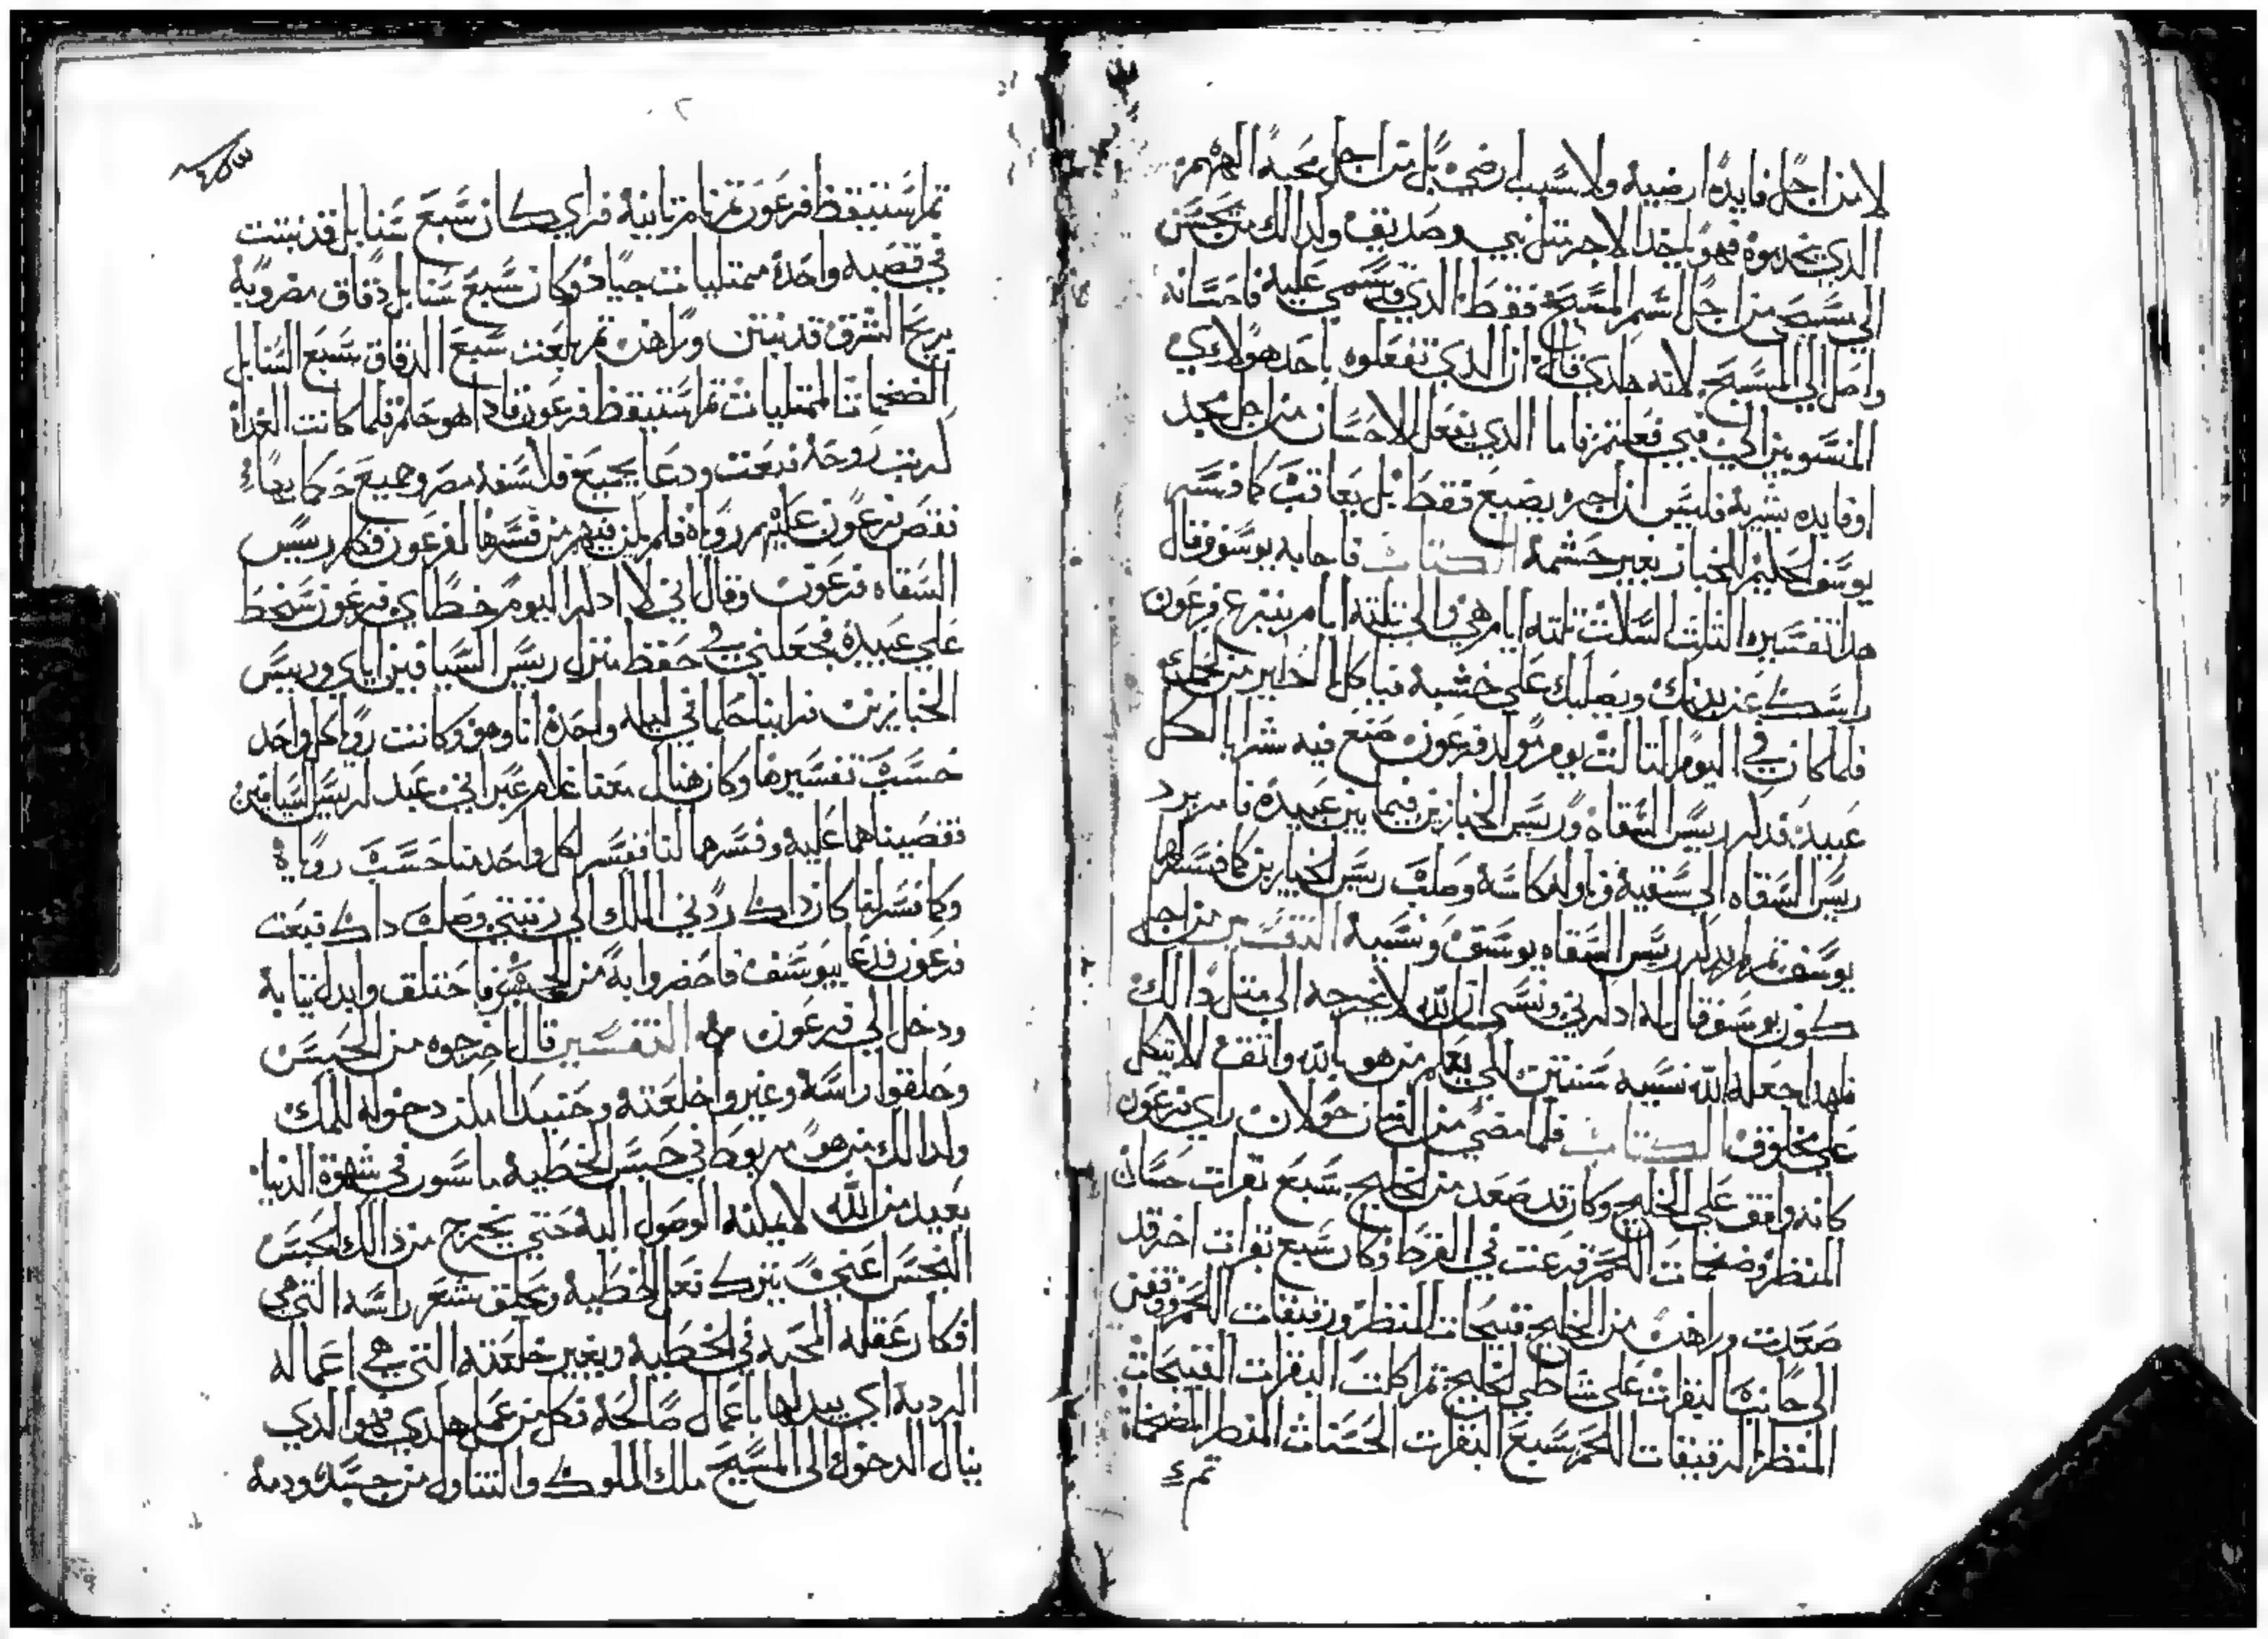 لا من اجل فايده ارضيه ولا سبب ارضي بل من اجل محبة الههم
الدي يخدموه فهو ياخد الاجر متل نبي وصديق ولدالك من يحسن
الي من اجل اسم المسيح فقط الدي قد سمي عليه فاحسانه
واصل الي المسيح لانه هاكدي قال ان الدي تفعلوه باحد هولاي
المنسوبين الي فبي فعلتم فاما الدي يفعل الاحسان من اجل مجد
او فايده بشرية فليس ان اجره يضيع فقط بل يعاقب كما فسر
يوسف الحليم للخباز بغير حشمة الكتاب فاجابه يوسف وقال
هدا تفسيره التلت السلات تلته ايام هي والي تلته ايام ينزع فرعون
راسك عن بدنك ويصلبك علي خشبة فياكل الطاير من لحمك
فلما كان في اليوم التالت يوم مولد فرعون صنع فيه شرابا لكل
عبيده فدكر رييس السقاه ورييس الخبازين فيما بين عبيده فامر برد
رييس السقاه الي سقيه وناوله كاسه وصلب رييس الخبازين كما فسر لهم
يوسف تم لم يدكر رييس السقاه يوسف ونسيه التفسير من اجل
كون يوسف قال له ادكرني ونسي ان الله لا يحوجه الي متل دالك
فلهدا جعله الله نسيه سنتين لكي يعلم من هو بالله واتق لا يتكل
علي مخلوق الكتاب فلما مضي من الزمان حولان راي فرعون
كانه واقف علي الخليج وكان قد صعد من الخليج سبع بقرات حسان
المنظر وضخمات اللحم فرعت في القرط وكان سبع بقرات اخر قد
صعدت وراهن من الخليج قبيحات المنظر ورقيقات اللحم ووقفن
الي جانب البقرات علي شاطي الخليج تم اكلت البقرات القبيحات
المنظر الرقيقات اللحم سبع البقرات الحسنات المنظر الضخما
تم استيقظ فرعون تم نام تانية فراي كان سبع سنابل قد نبتت
في قصبه واحده ممتليات جياد وكان سبع سنابل دقاق مضروبة
بريح الشرق قد نبتن وراهن تم بلعت سبع الدقاق سبع السنابل
الضخمات الممتليات تم استيقظ فرعون فادا هو حلم فلما كانت الغداه
كربت روحه فبعت ودعا بجميع فلاسفة مصر وجميع حكمايها
فقص فرعون عليهم روياه فلم يكن فيهم من فسرها لفرعون فكلم رييس
السقاه فرعون وقال اني لا ادكر اليوم خطاي فرعون سخط
علي عبيده فجعلني في حفظ منزل رييس السيافين اياي ورييس
الخبازين فراينا حلما في ليله واحده انا وهو وكانت رويا كل واحد
حسب تفسيرها وكان هناك معنا غلام عبراني عبد لرييس السيافين
فقصيناهما عليه وفسرها لنا ففسر لكل واحد منا حسب روياه
وكما فسر لنا كان داك ردني الملك الي رتبتي وصلب داك فبعت
فرعون فدعا بيوسف فاحضروا به من الحبس فاحتلق وابدل تيابه
ودخل الي فرعون التفسير قال اخرجوه من الحبس
وحلقوا راسه وغيروا خلعته وحينيد امكن دخوله للملك
ولدالك من هو مربوط في حبس الخطية ماسور في شهوة الدنيا
بعيد من الله لا يمكنه الوصول اليه حتي يخرج من دالك الحبس
النجس اعني يترك فعال الخطية ويحلق شعر راسه التي هي
افكار عقله المحبه في الخطية ويغير خلعته التي هي اعماله
الرديه اي يبدلها باعمال صالحة فكل من عمل هاكدي فهو الدي
ينال الدخول الي المسيح ملك الملوك والتناول من جسده ودمه